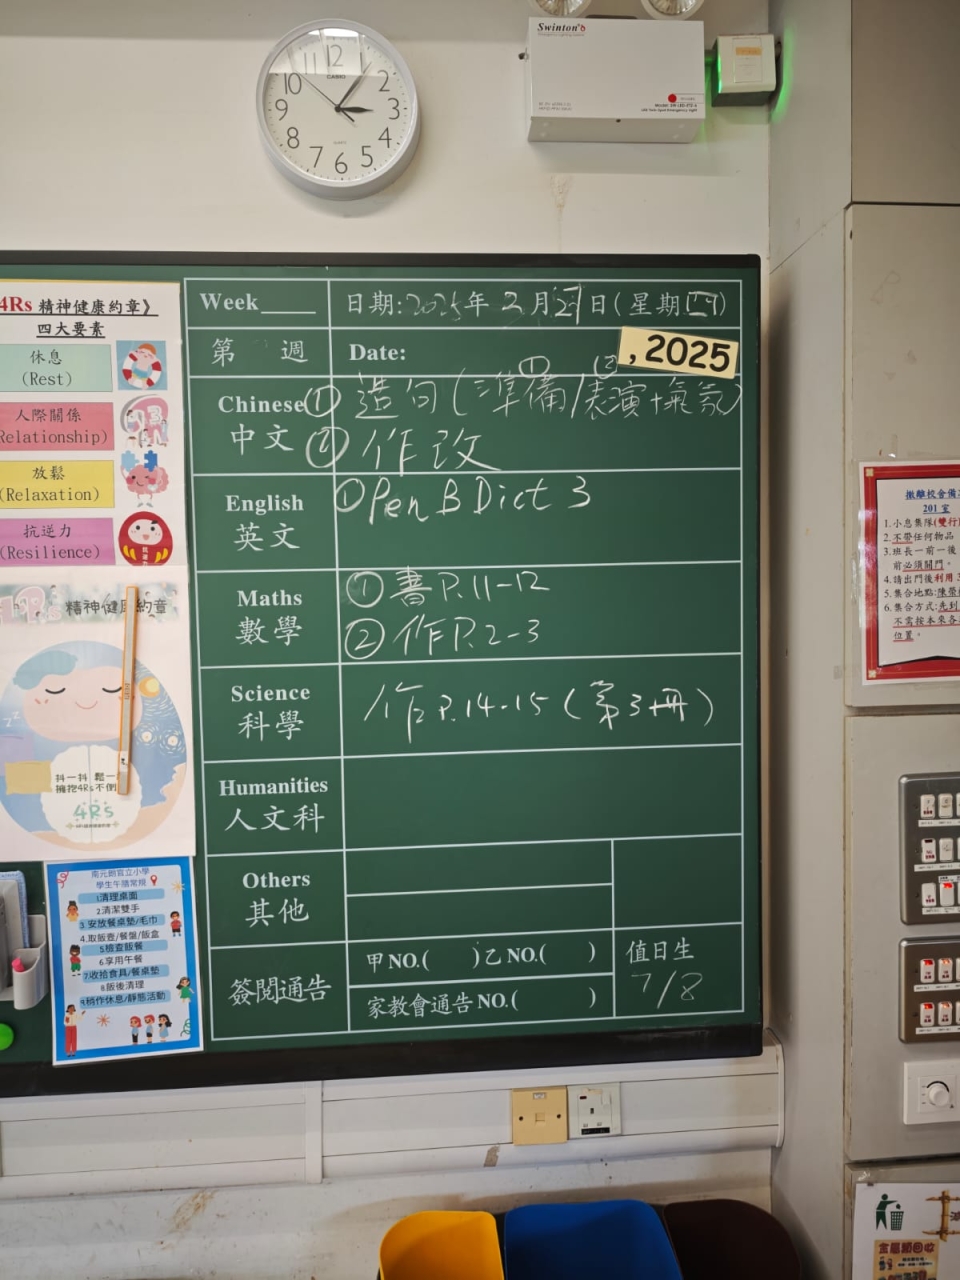 12
2
3
4
5
6
7
8
9
10
CASIO
QUARTZ
Swinton's
4Rs 精神健康約章》
四大要素
休息
(Rest)
人際關係
Relationship)
放鬆
(Relaxation)
抗逆力
(Resilience)
4Rs 精神健康約章
抖一抖 鬆一
擁抱4Rs不倒
4Rs
南元朗官立小學
學生午膳常規
1.清理桌面
2.清潔雙手
3.安放餐桌墊/毛巾
4.取飯壺/餐盤/飯盒
5.檢查飯餐
6.享用午餐
7.收拾食具/餐桌墊
8.飯後清理
9.稍作休息/靜態活動
Week
日期:2025年 2月27日(星期四)
第 週
Date:
, 2025
Chinese ① 造句(準備①/表演②+氣氛)
中文 ② 作改
English ① Pen B Dict 3
英文
Maths ① 書P.11-12
數學 ② 作P.2-3
Science
科學
作P.14-15(第3冊)
Humanities
人文科
Others
其他
簽閱通告
甲NO.( )乙NO.( )
家教會通告NO.( )
值日生
7/8
撤離校舍備
201室
1.小息集隊(雙行
2.不帶任何物品
3.班長一前一後
前必須關門。
4.請出門後利用
5.集合地點:陳榮
6.集合方式:先到
不需按本來各
位置。